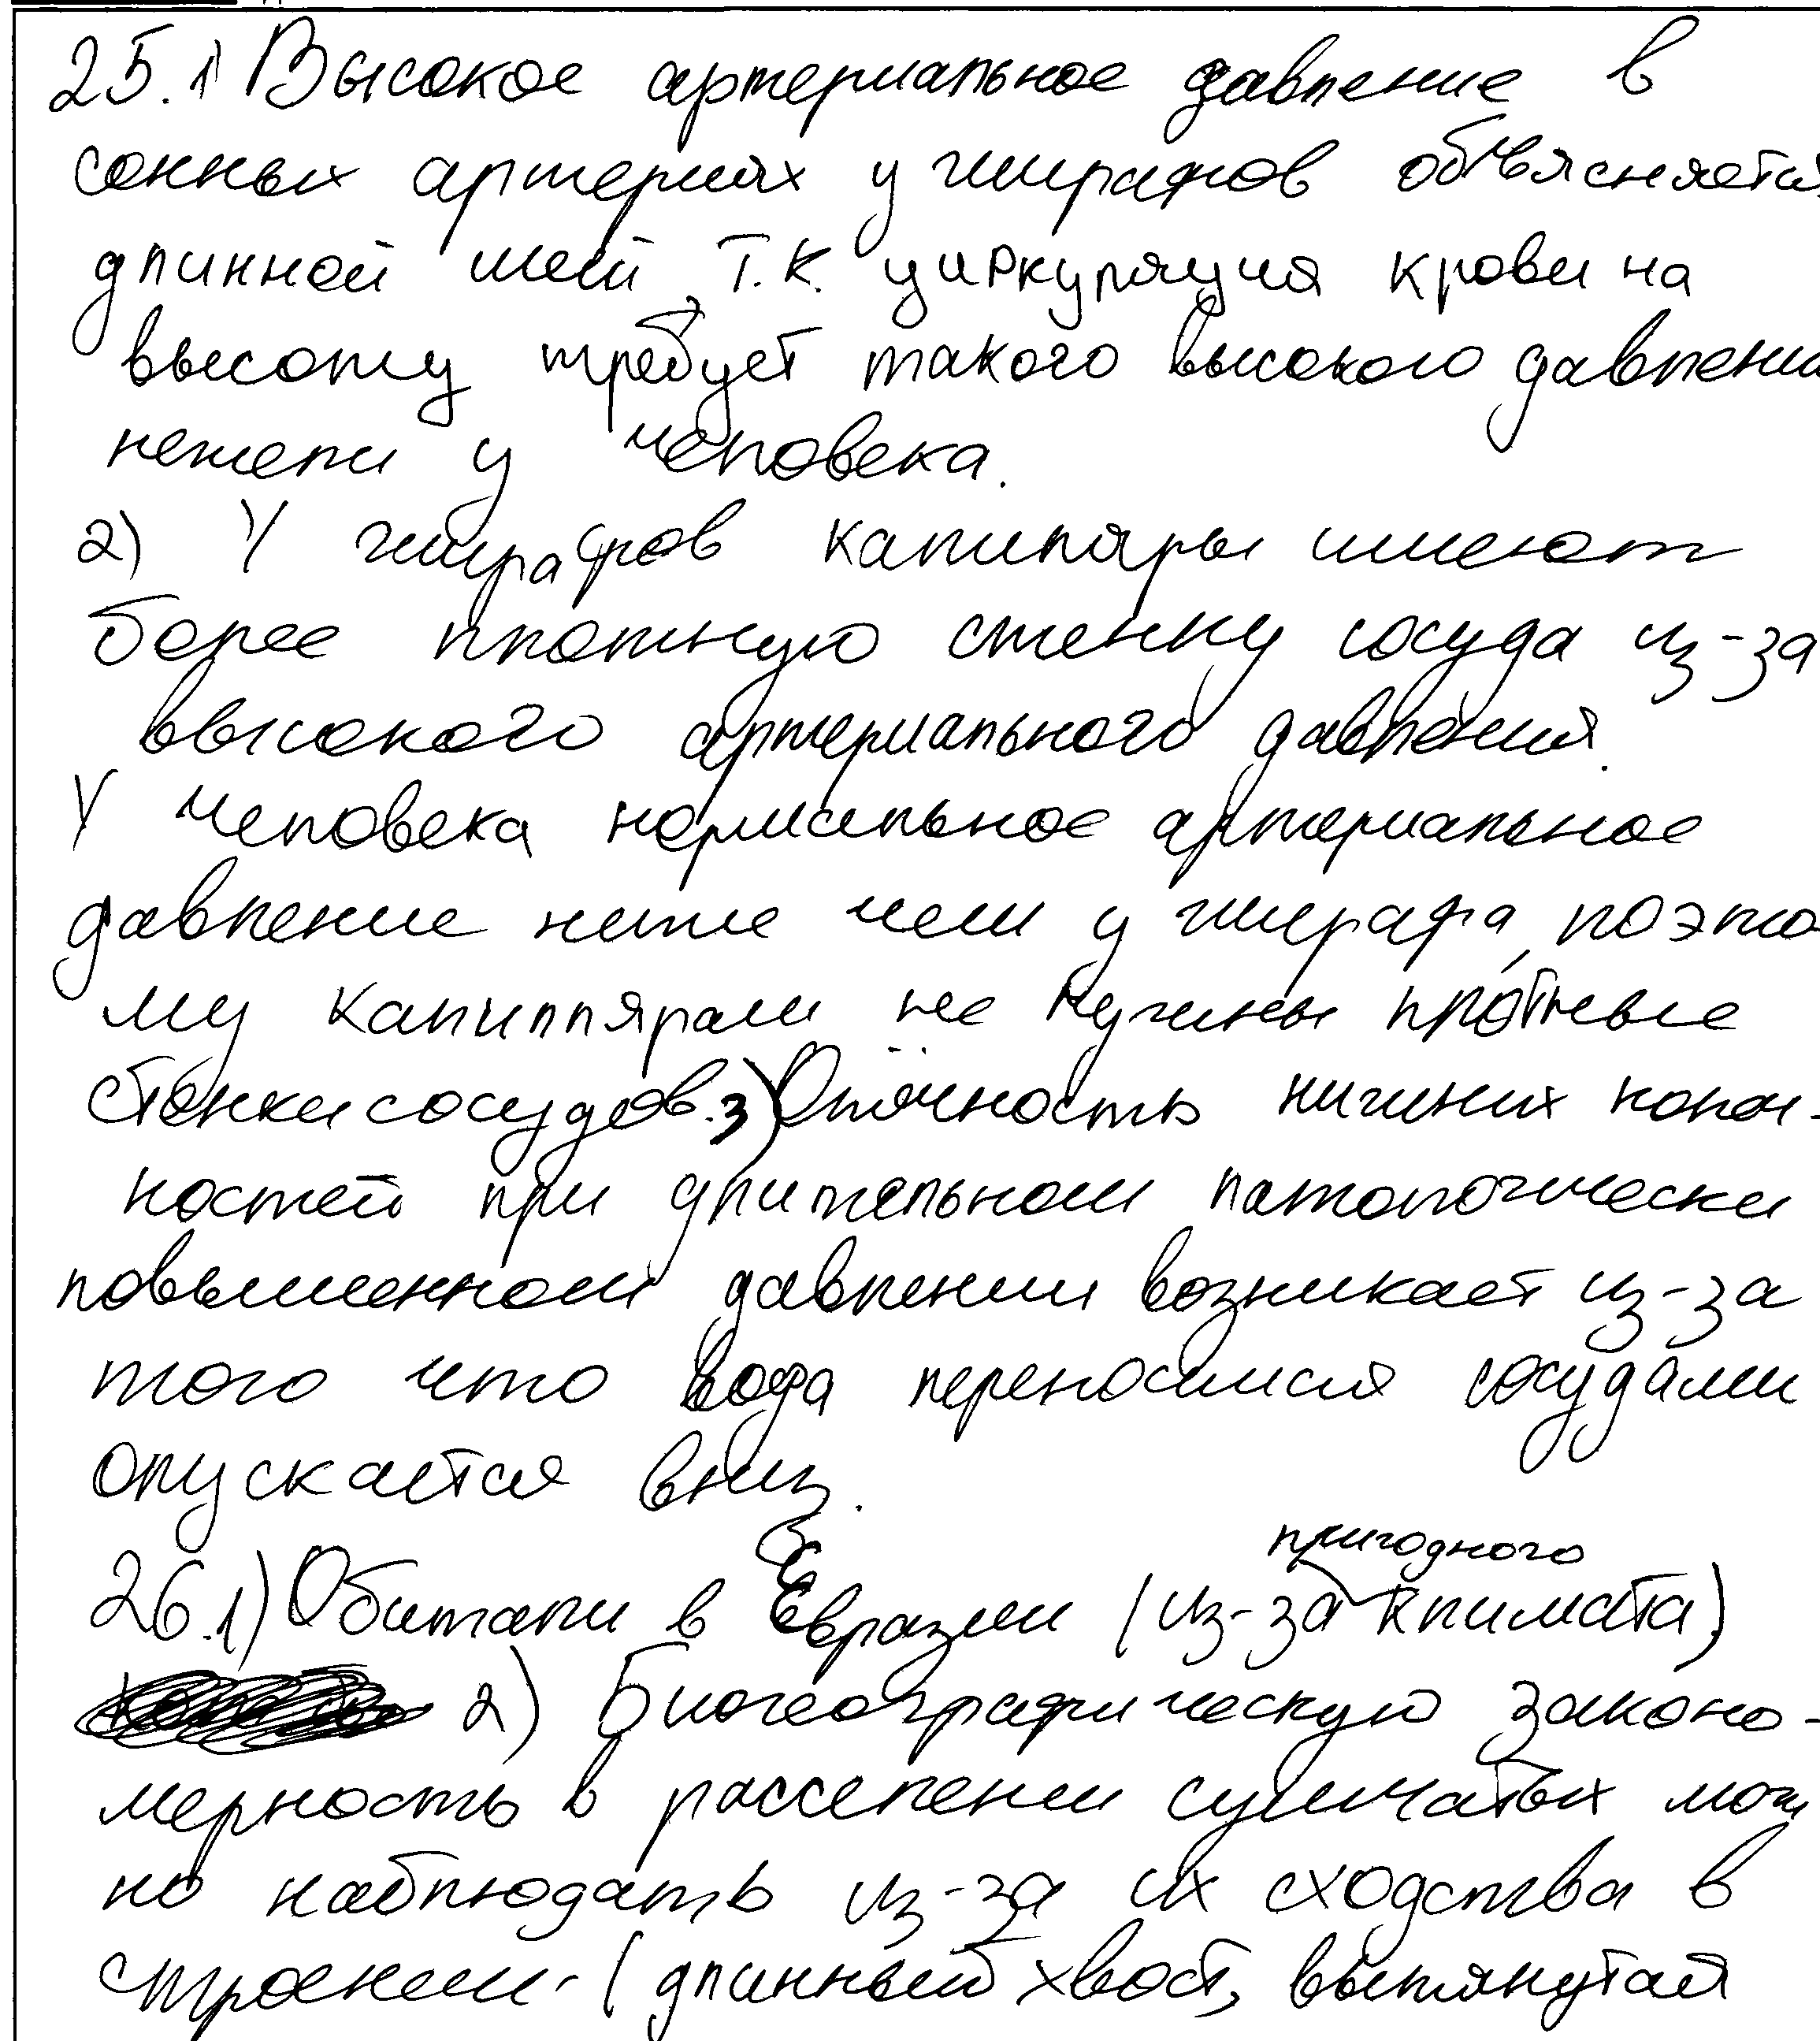 25.1) Высокое артериальное давление в
сонных артериях у жирафов объясняется
длинной шеи, т.к. циркуляция крови на
высоту требует такого высокого давлени
нежели у человека.
2) У жирафов капиляры имеют
более плотную стенку сосуда из-за
ввысокого артериального давления.
У человека нормальное артериальное
давление ниже чем у жирафа, поэто-
му капиллярам не нужны плотные
стенки сосудов. 3) Отёчность нижних конеч-
ностей при длительном патологически
повышенном давлении возникает из-за
того что вода переносимся сосудами
опускается вниз.
пригодного
26.1) Обитали в Евразии (из-за климата)
2) Биогеографическую законо-
мерность в расселении сумчатых мож
но наблюдать из-за их сходства в
строении. (длинный хвост, вытянутая